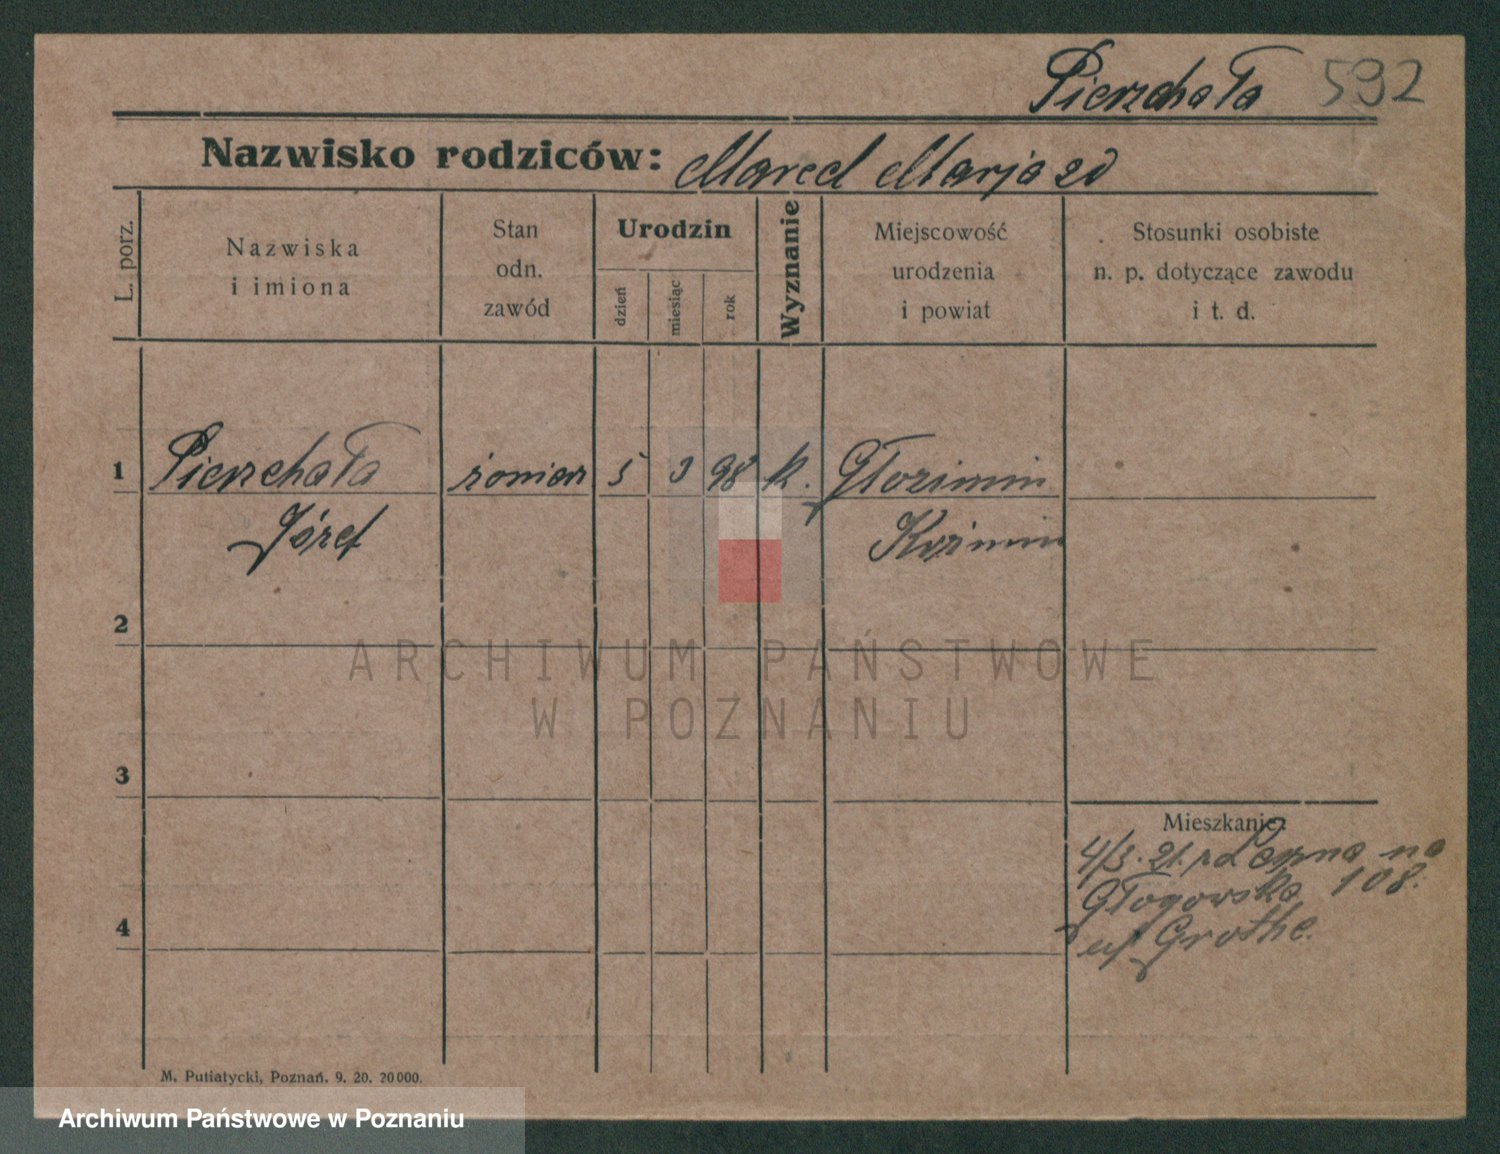 Pierzchała 592
Nazwisko rodziców: Marcel Marja
L. porz.
Nazwiska
i imiona
Stan
odn.
zawód
Urodzin
dzień
miesiąc
rok
Wyznanie
Miejscowość
urodzenia
i powiat
Stosunki osobiste
n. p. dotyczące zawodu
i t. d.
1 Pierzchała 5 3 98 k.
Józef Koźmin
2
ARCHIWUM PAŃSTWOWE
W POZNANIU
3
Mieszkanie:
4/3. 21. na
Głogowska 108.
4
Grothe.
M. Putiatycki, Poznań. 9. 20. 20000.
Archiwum Państwowe w Poznaniu